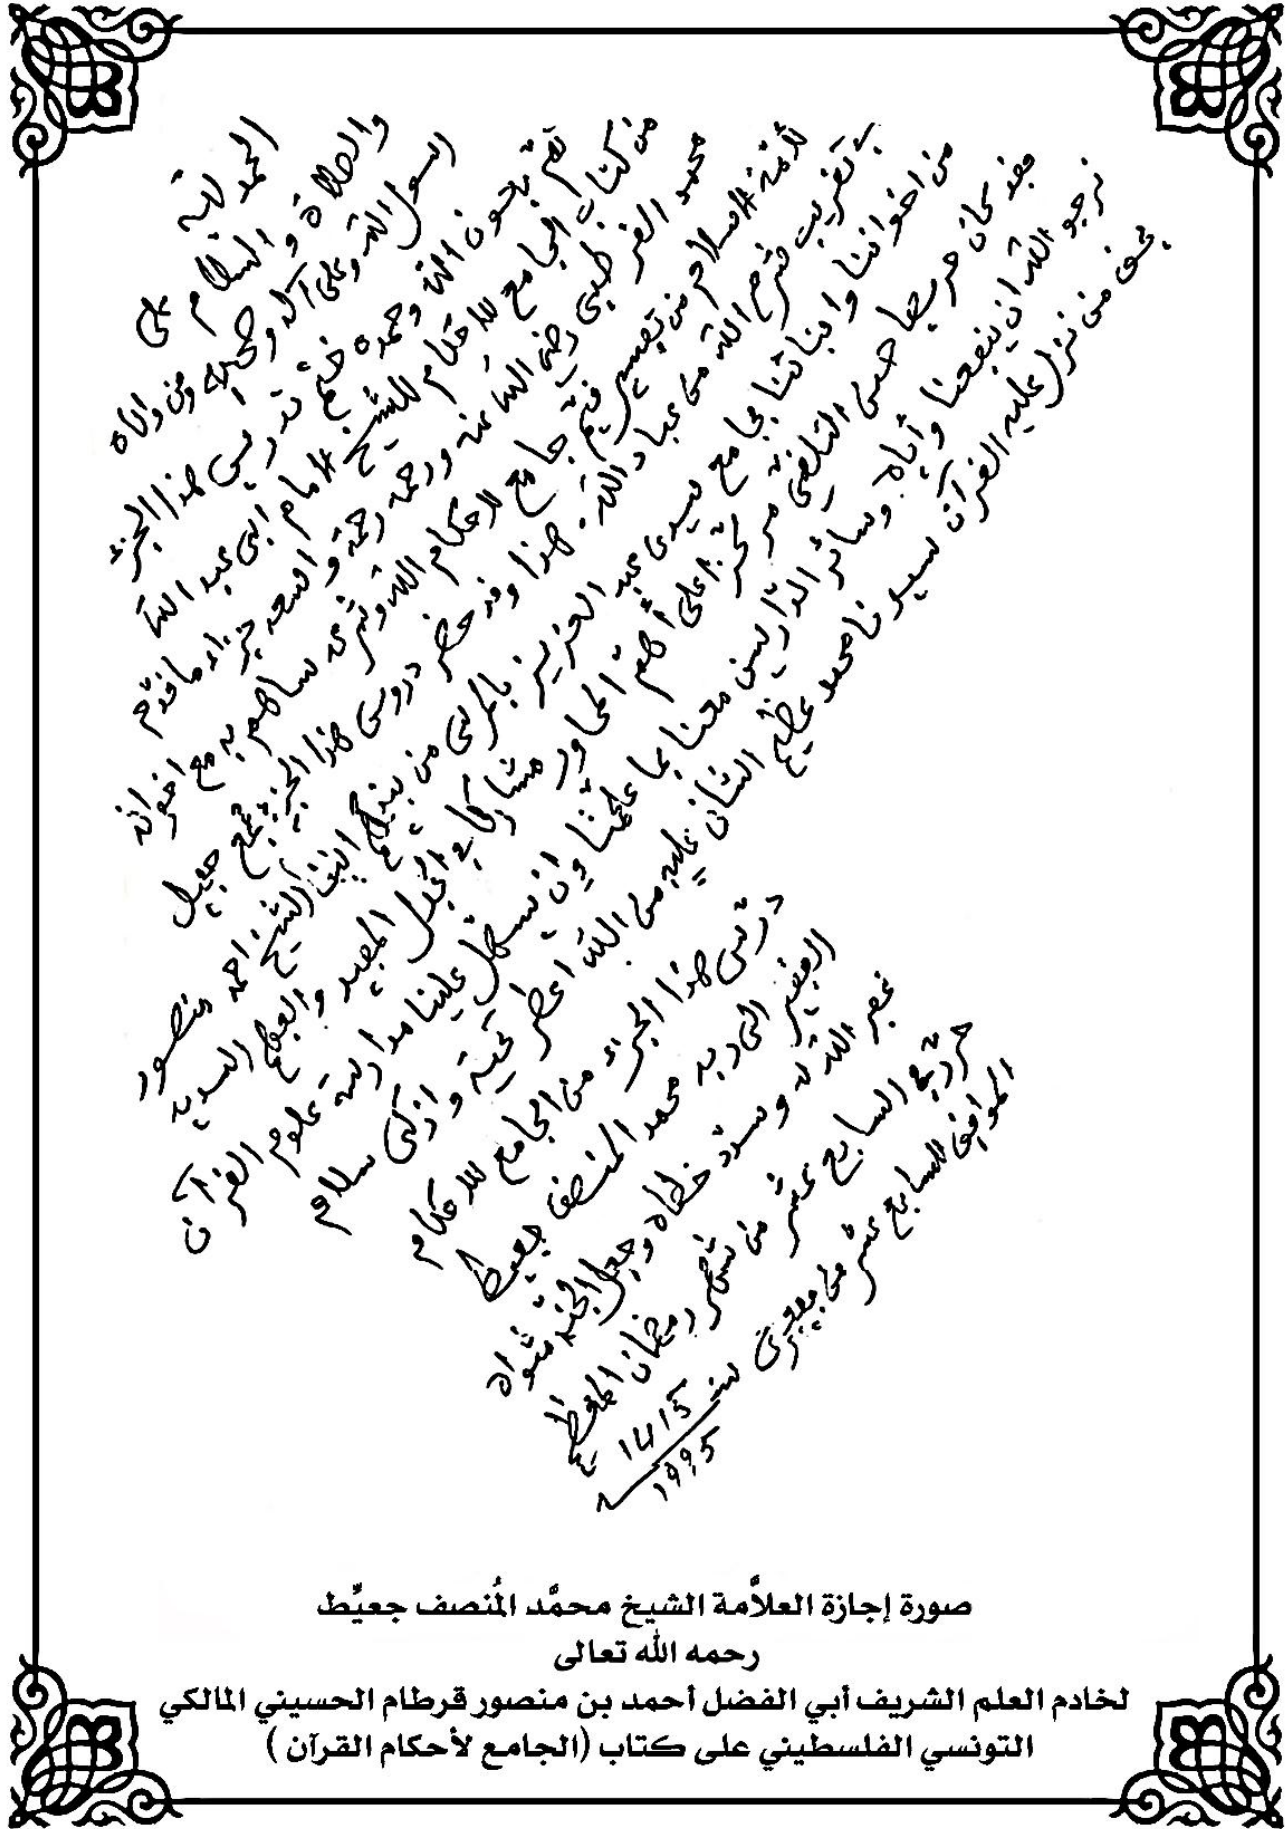 الحمد لله
والصلاة والسلام على
رسول الله وعلى آله وصحبه ومن والاه
تم بعون الله وحمده ختم تدريس هذا الجزء
من كتاب الجامع للأحكام للشيخ الإمام أبي عبد الله
محمد القرطبي رضي الله عنه ورحمه رحمة واسعة جزاء ما قدم
للأمة الإسلام من تفسير قيم جامع لأحكام الله وشرعه ساهم به مع إخوانه
في تقريب شرع الله من عباد الله. هذا وقد حضر دروس هذا الجزء جمع جميل
من اخواننا وابنائنا بجامع سيدي عبد العزيز بالمرسى من بينهم ابننا الشيخ أحمد منصور
فقد كان حريصا حسن التلقي مركزا على أهم المحاور مشاركا في المجلس المفيد والفهم السديد
نرجو الله أن ينفعنا وأياه وسائر الدارسين معنا بما علمنا وأن يسهل علينا مدارسة علوم القرآن
بحق من نزل عليه القرآن سيدنا محمد عظيم الشان عليه من الله اعطر تحية وازكى سلام
درس هذا الجزء من الجامع للأحكام
الفقير الى ربه محمد المنصف جعيط
غفر الله له وسدد خطاه وجعل الجنة مثواه
حرر في السابع عشر من شهر رمضان المعظم
الموافق السابع عشر من فيفري سنة
1415
1995
صورة إجازة العلاَّمة الشيخ محمَّد المُنصف جعيِّط
رحمه الله تعالى
لخادم العلم الشريف أبي الفضل أحمد بن منصور قرطام الحسيني المالكي
التونسي الفلسطيني على كتاب (الجامع لأحكام القرآن )